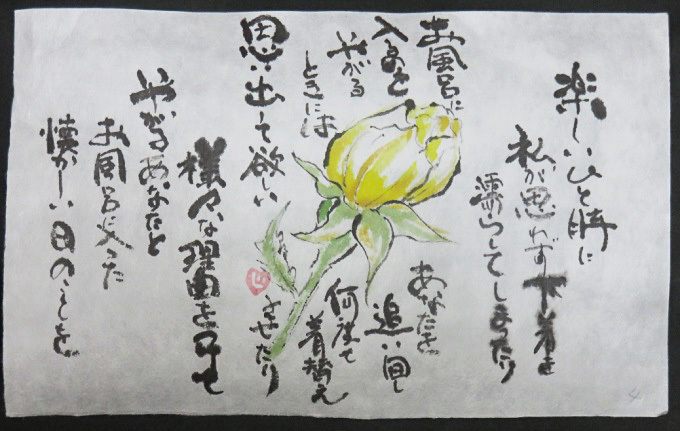 楽しいひと時に
私が思わず下着を
濡らしてしまったり
お風呂に
入るのを
やがる
ときには
あなたを
追い回し
何度も
着替え
させたり
思い出して欲しい
様々な理由をつけて
やがるあなたと
お風呂に入った
懐かしい日のことを
4